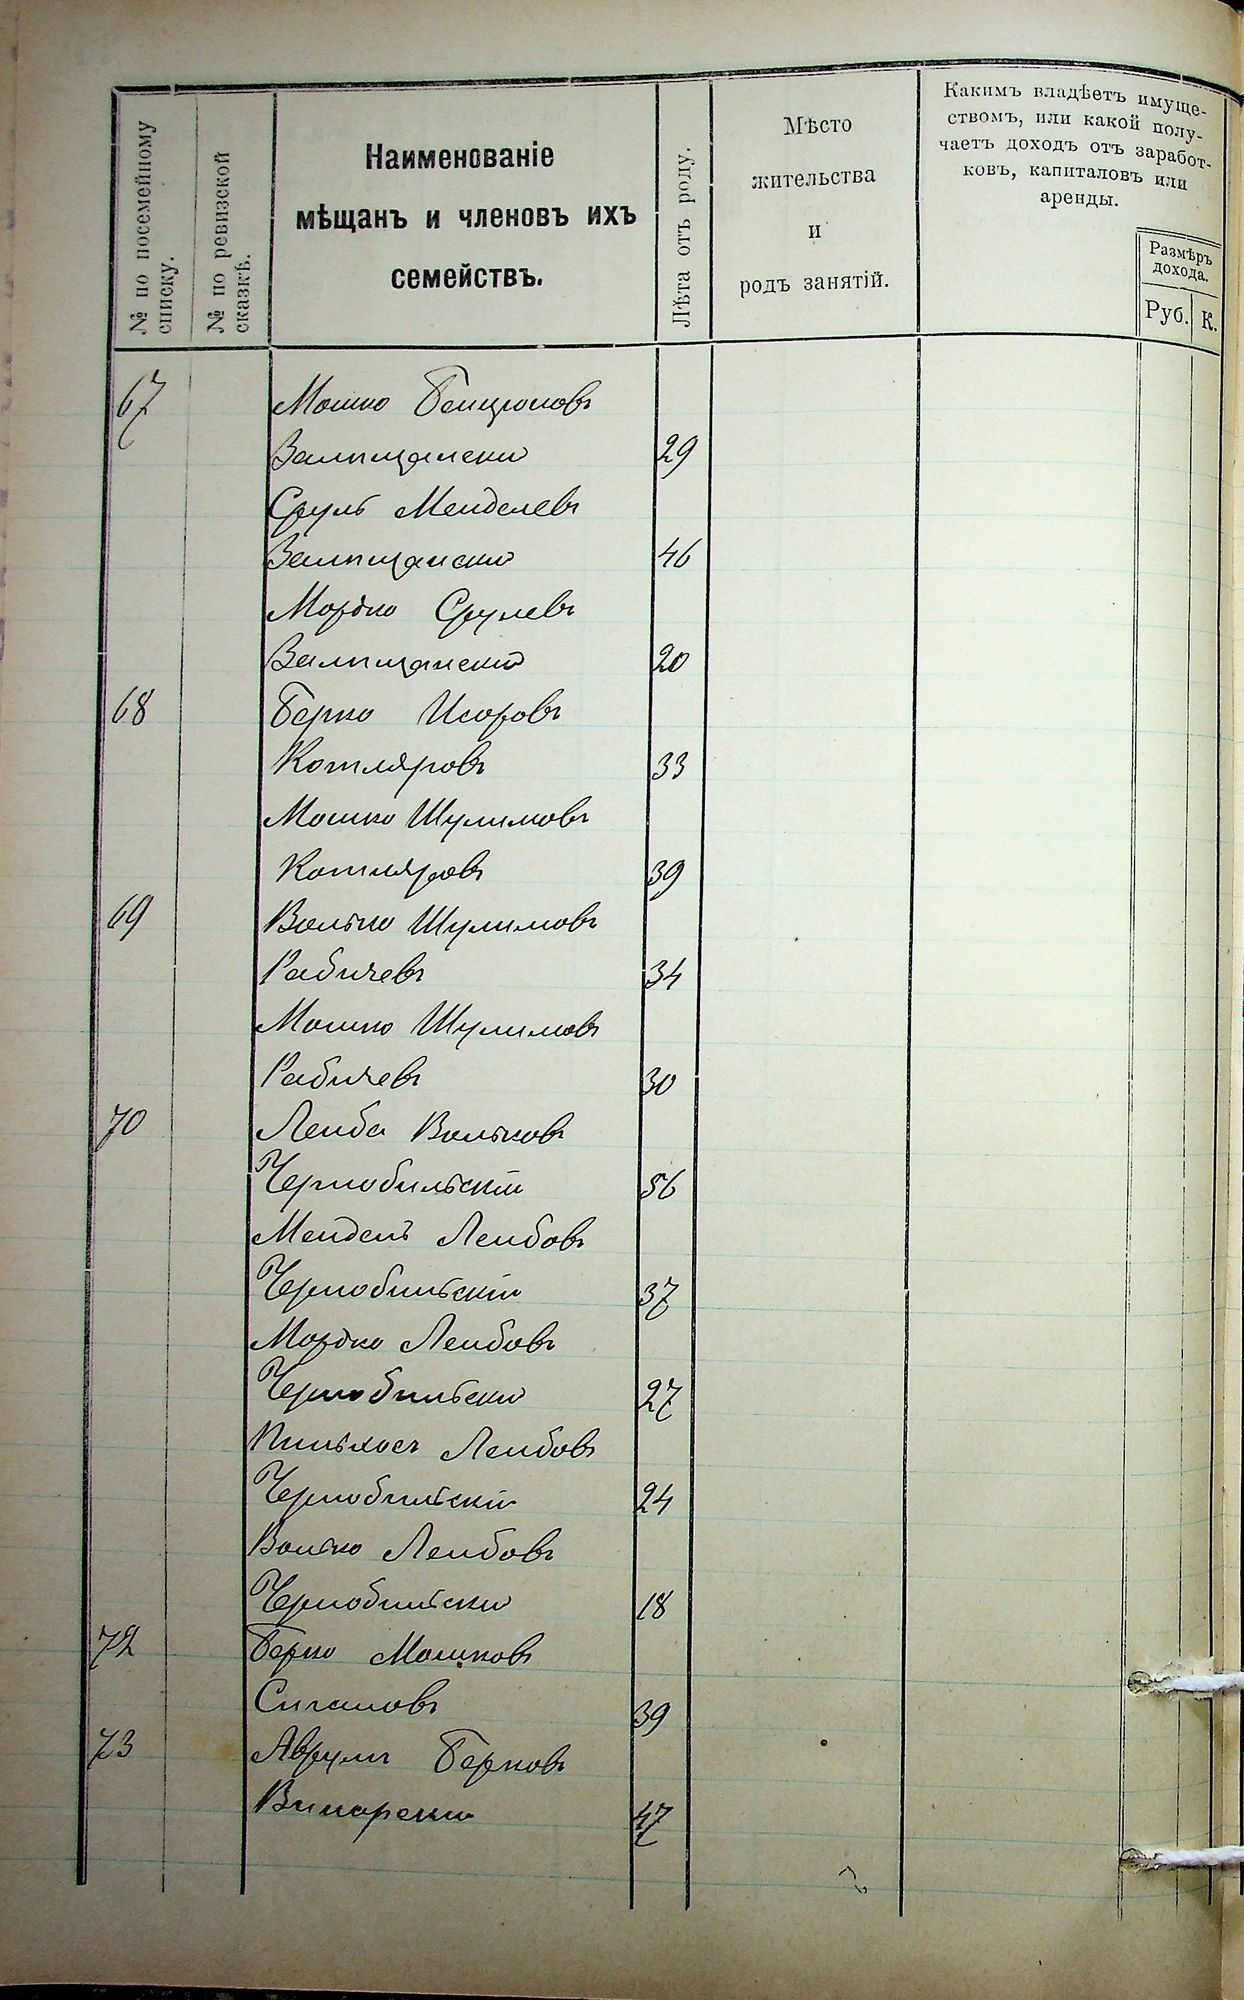 № по посемейному
списку.
№ по ревизской
сказкѣ.
Наименованіе
мѣщанъ и членовъ ихъ
семействъ.
Лѣта отъ роду.
Мѣсто
жительства
и
родъ занятій.
Какимъ владѣетъ имуще-
ствомъ, или какой полу-
чаетъ доходъ отъ заработ-
ковъ, капиталовъ или
аренды.
Размѣръ
дохода.
Руб. К.
67 Мошко Бенціоновъ
29
Сруль Менделевъ
46
Мордко Срулевъ
20
68 Берко Исоровъ
Котляровъ 33
Мошко Шулимовъ
Котляровъ 39
69 Волько Шулимовъ
Рабичевъ 34
Мошко Шулимовъ
Рабичевъ 30
70 Лейба Вольковъ
Чернобильскій 56
Мендель Лейбовъ
Чернобильскій 37
Мордко Лейбовъ
Чернобильскій 27
Пинхосъ Лейбовъ
Чернобильскій 24
Волько Лейбовъ
Чернобильскій 18
72 Берко Мошковъ
Сигаловъ 39
73 Аврумъ Берковъ
Винарскій 47